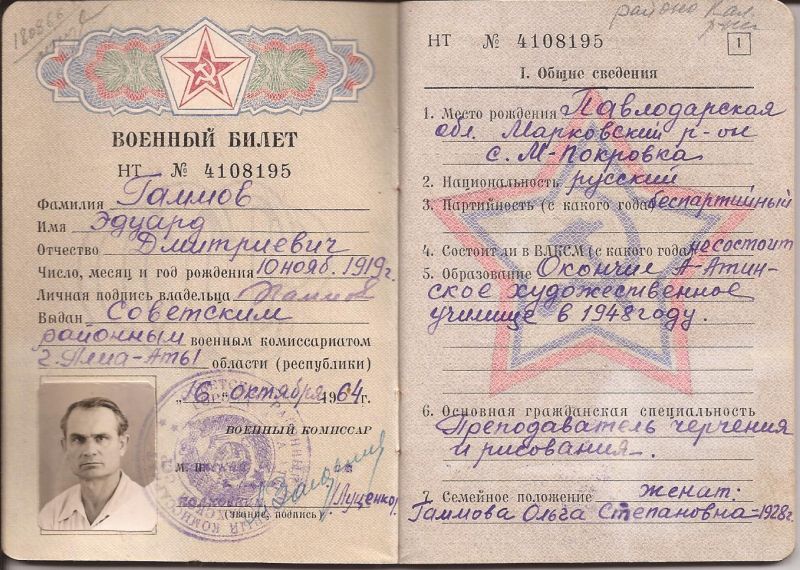 180866
ВОЕННЫЙ БИЛЕТ
НТ № 4108195
Фамилия Гаммов
Имя Эдуард
Отчество Дмитриевич
Число, месяц и год рождения 10 нояб. 1919 г.
Личная подпись владельца Гаммов
Выдан Советским
районным военным комиссариатом
г. Алма-Аты области (республики)
„16" октября 1964 г.
ВОЕННЫЙ КОМИССАР
М. П.
Луценко
(звание, подпись)
района Кал.
НТ № 4108195
1
I. Общие сведения
1. Место рождения Павлодарская
обл. Марковский р-он
с. М-Покровка
2. Национальность русский
3. Партийность (с какого года) беспартийный
4. Состоит ли в ВЛКСМ (с какого года) несостоит
5. Образование Окончил А-Атин-
ское художественное
училище в 1948 году.
6. Основная гражданская специальность
Преподаватель черчения
и рисования.
7. Семейное положение женат:
Гаммова Ольга Степановна-1928г.